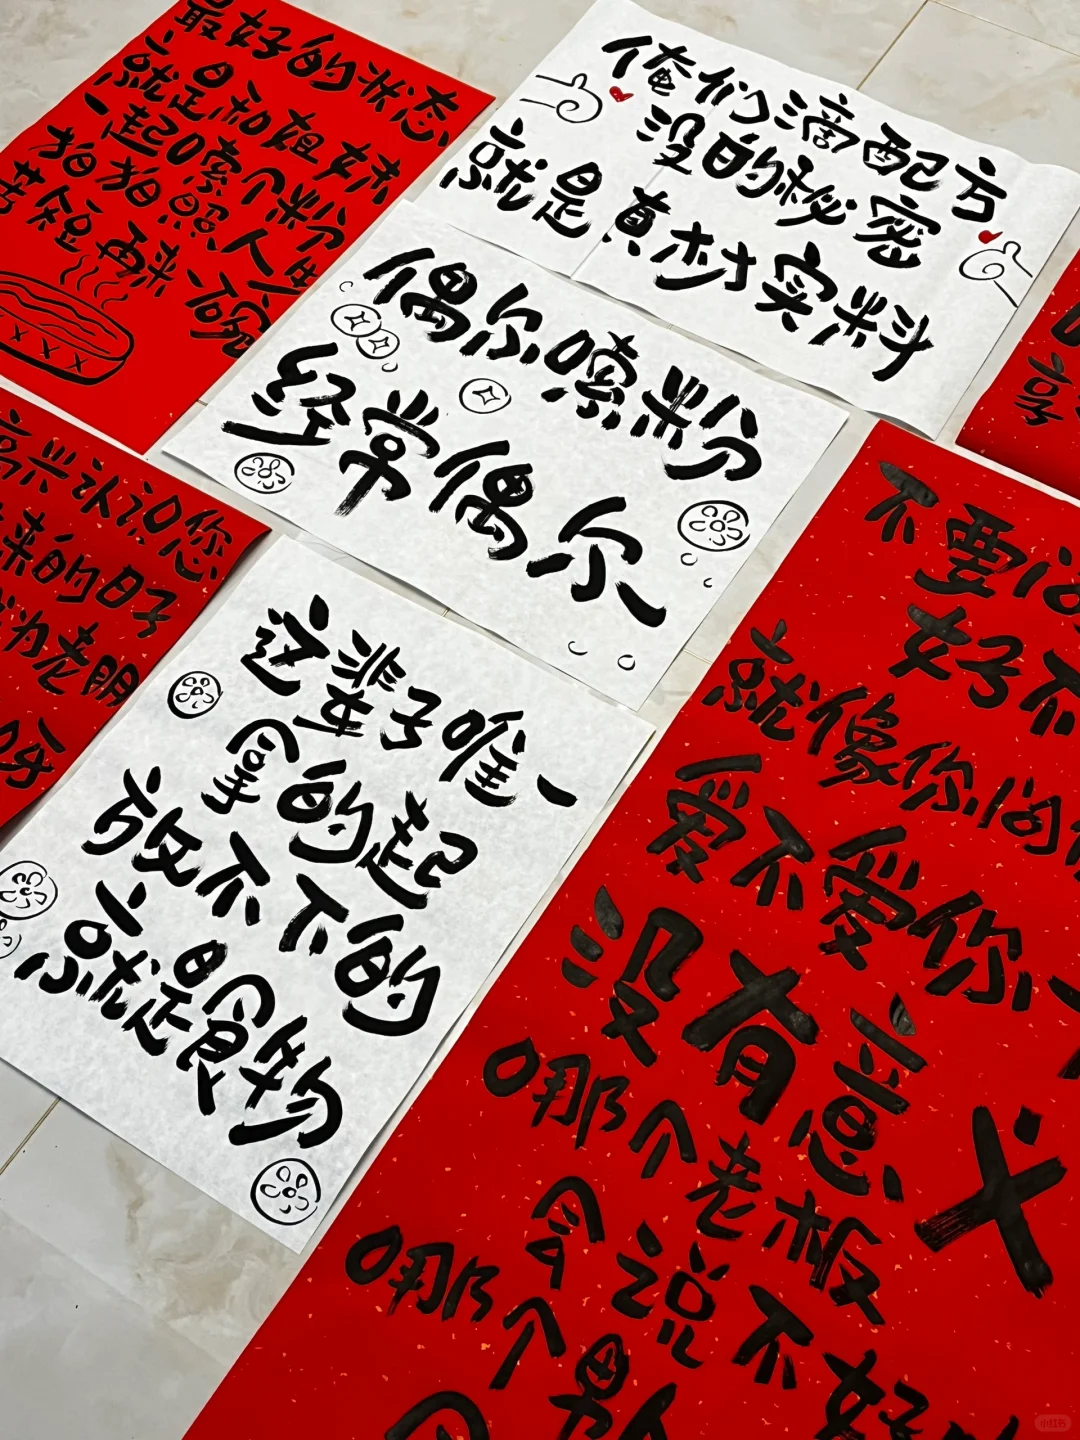 最好的状态
就是和姐妹
一起嗦个粉
拍拍照人生
苦短再来一碗
俺们滴配方
没的秘密
就是真材实料
偶尔嗦粉
经常偶尔
高兴认识您
来的日子
成为老朋
呀
这辈子唯一
拿的起
放不下的
就是食物
享
不要问
好不
就像你问
爱不爱你
没有意
义
哪个老板
会说不好
哪个男人
会
小红书